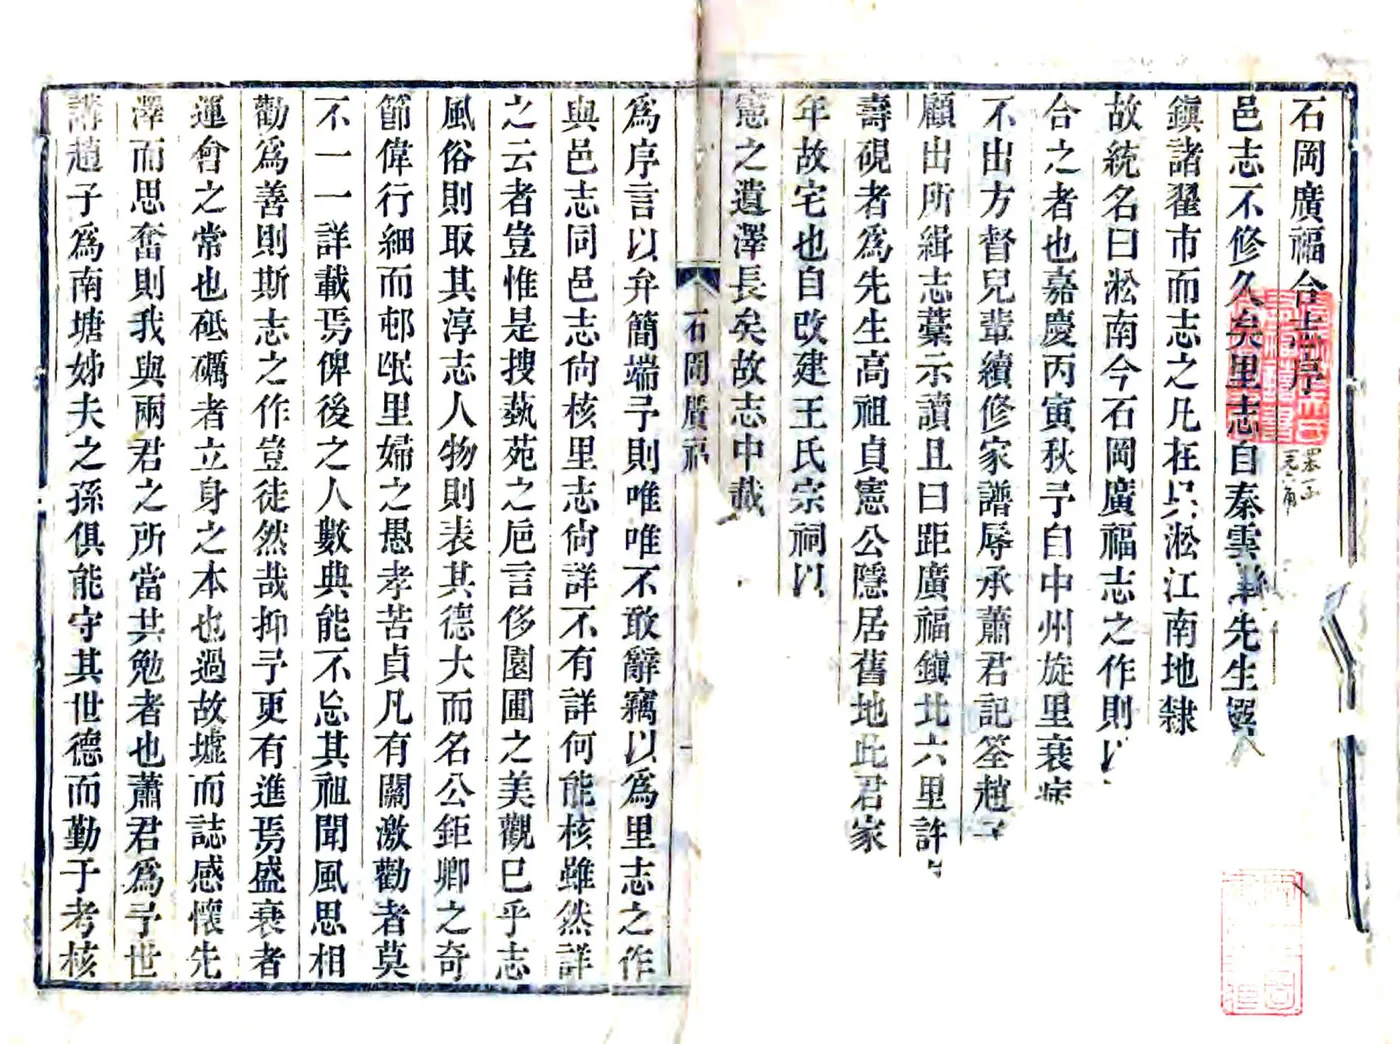 石岡廣福合志序
邑志不修久矣里志自秦雲津先生撰
鎮諸翟市而志之凡在吳淞江南地隸
故統名曰淞南今石岡廣福志之作則以
合之者也嘉慶丙寅秋予自中州旋里衰病
不出方督兒輩續修家譜辱承蕭君記筌趙子
顧出所緝志藁示讀且曰距廣福鎮北六里許
壽硯者為先生高祖貞憲公隱居舊地此君家
年故宅也自改建王氏宗祠以
憲之遺澤長矣故志中載
石岡廣福
為序言以弁簡端予則唯唯不敢辭竊以為里志之作
與邑志同邑志尙核里志尙詳不有詳何能核雖然詳
之云者豈惟是搜蓺苑之巵言侈園圃之美觀已乎志
風俗則取其淳志人物則表其德大而名公鉅卿之奇
節偉行細而邨氓里婦之愚孝苦貞凡有關激勸者莫
不一一詳載焉俾後之人數典能不忘其祖聞風思相
勸為善則斯志之作豈徒然哉抑予更有進焉盛衰者
運會之常也砥礪者立身之本也過故墟而誌感懷先
澤而思奮則我與兩君之所當共勉者也蕭君為予世
講趙子為南塘姊夫之孫俱能守其世德而勤于考核